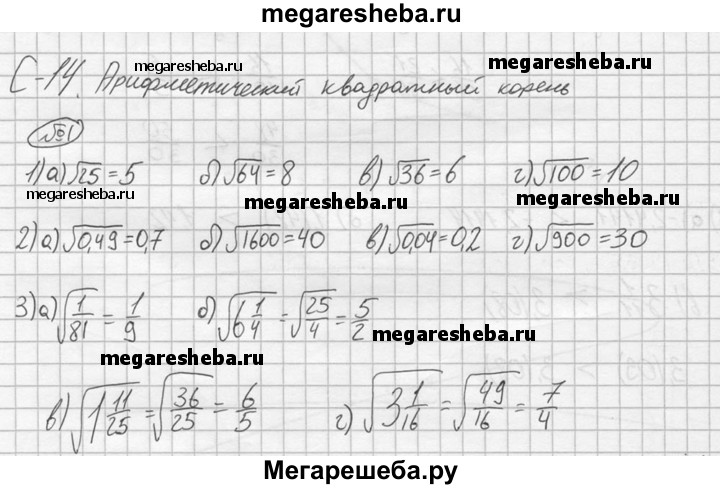 megaresheba.ru
megaresheba.ru megaresheba.ru
С-14. Арифметический квадратный корень
№1
1) а) √25 = 5 б) √64 = 8 в) √36 = 6 г) √100 = 10
megaresheba.ru megaresheba.ru megaresheba.ru
2) а) √0,49 = 0,7 б) √1600 = 40 в) √0,04 = 0,2 г) √900 = 30
3) а) √(1/81) = 1/9 б) √(6 1/4) = √(25/4) = 5/2
megaresheba.ru
megaresheba.ru
в) √(1 11/25) = √(36/25) = 6/5 г) √(3 1/16) = √(49/16) = 7/4
Мегарешеба.ру